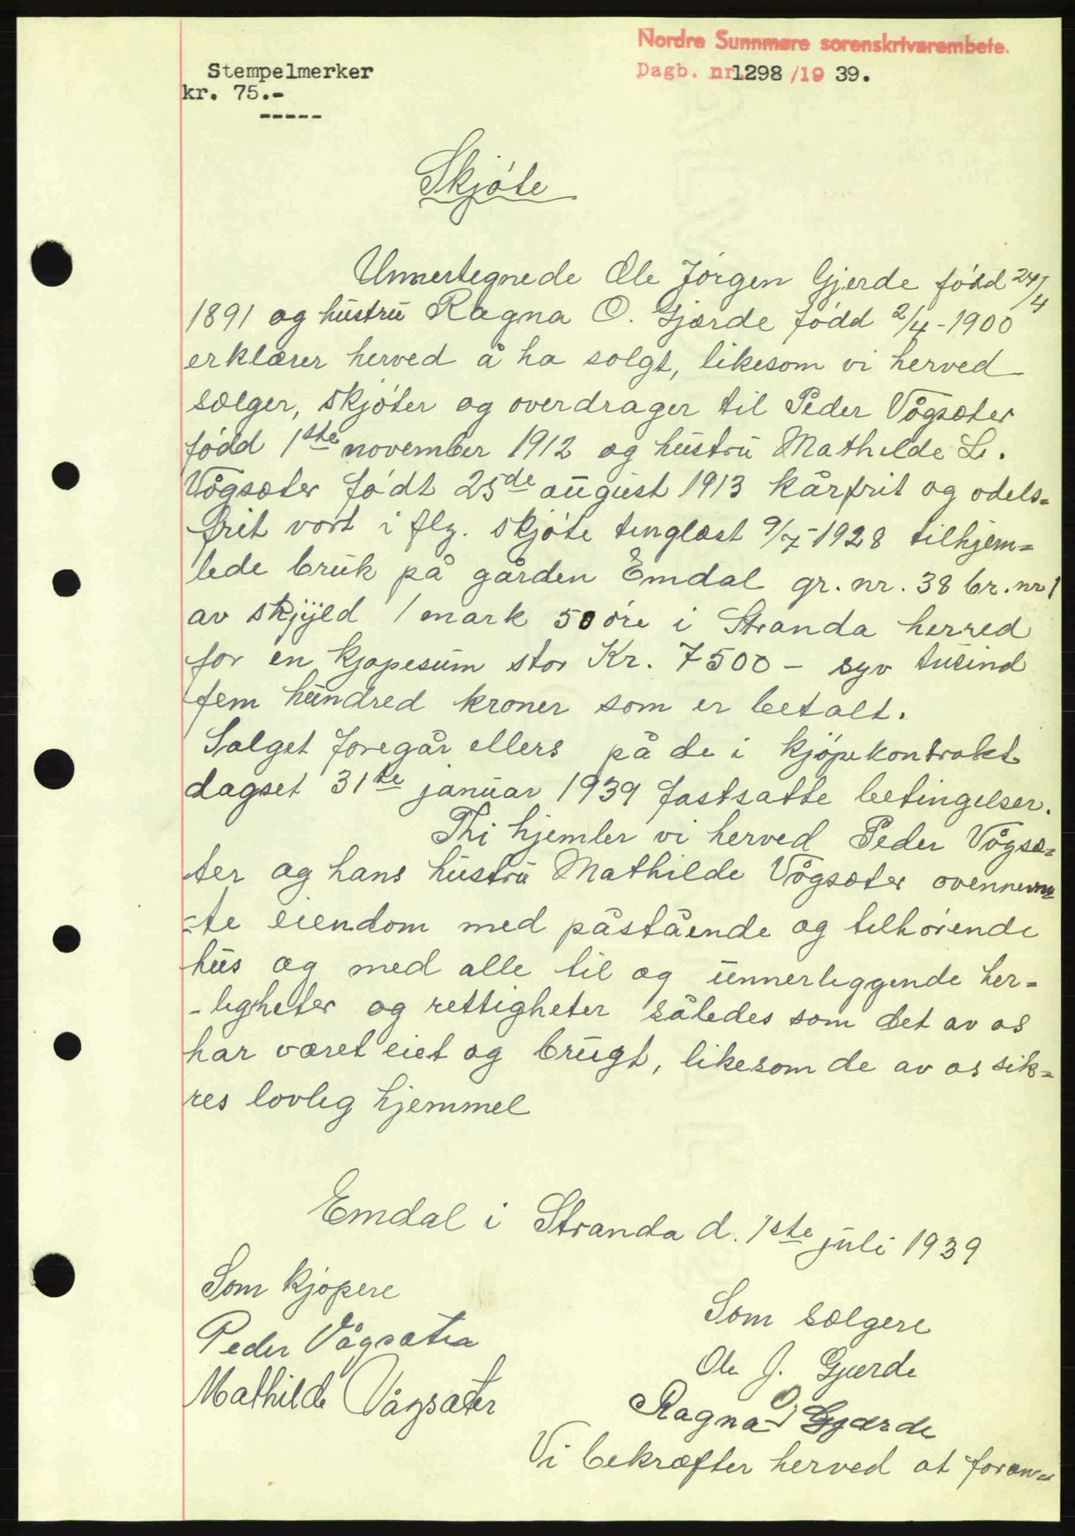 Nordre Sunnmøre sorenskriverembete.
Dagb. nr. 1298 /19 39.
Stempelmerker
kr. 75.-
-----
Skjøte
Unnertegnede Ole Jørgen Gjerde født 24/4
1891 og hustru Ragna O. Gjærde født 2/4-1900
erklærer herved å ha solgt, likesom vi herved
sælger, skjøter og overdrager til Peder Vågsæter
født 1ste november 1912 og hustru Mathilde L.
Vågsæter født 25de august 1913 kårfrit og odels=
frit vort i flg. skjøte tinglæst 9/7-1928 tilhjem=
lede bruk på gården Emdal gr. nr. 38 br. nr 1
av skyld 1 mark 50 øre i Stranda herred
for en kjøpesum stor Kr. 7500- syv tusind
fem hundred kroner som er betalt.
Salget foregår ellers på de i kjøpekontrakt
dagset 31te januar 1939 fastsatte betingelser.
Thi hjemler vi herved Peder Vågsæ=
ter og hans hustru Mathilde Vågsæter ovennevn
=te eiendom med påstående og tilhørende
hus og med alle til og unnerliggende her=
-ligheter og rettigheter således som det av os
har været eiet og brugt, likesom de av os sik=
res lovlig hjemmel
Emdal i Stranda d. 1ste juli 1939
Som kjøpere
Peder Vågsæter
Mathilde Vågsæter
Som sælgere
Ole J. Gjærde
Ragna O Gjærde
Vi bekræfter herved at foran=